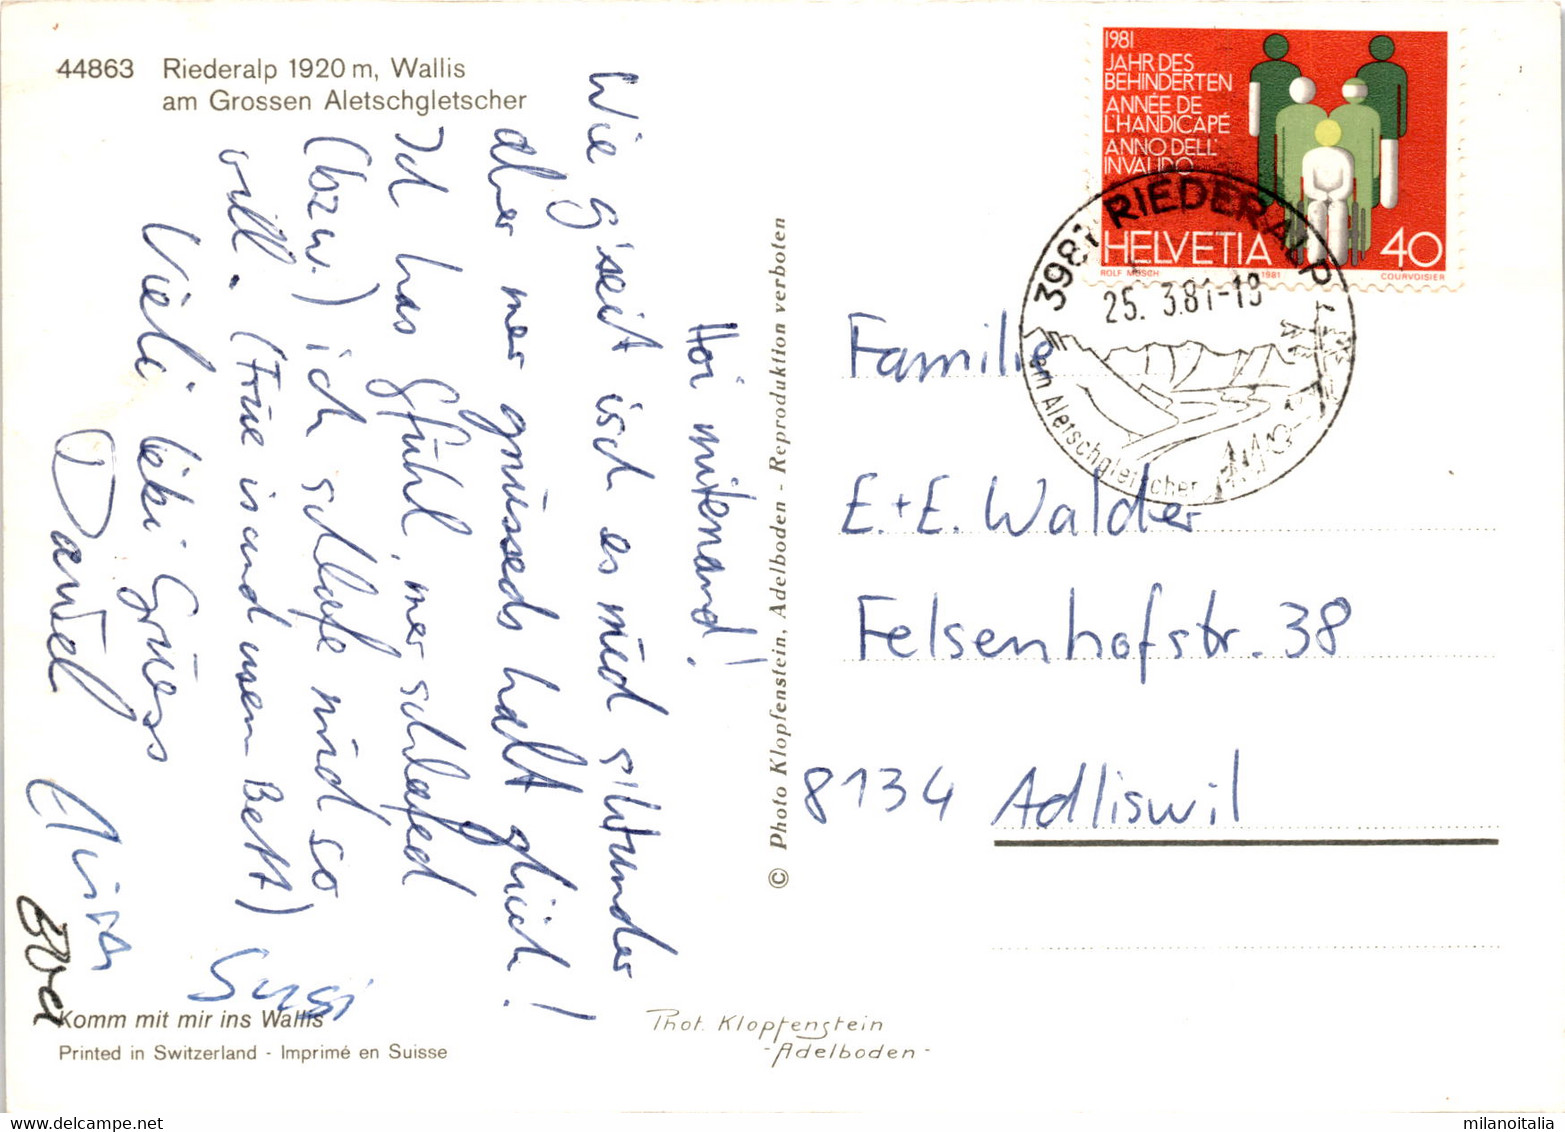 44863 Riederalp 1920 m, Wallis
am Grossen Aletschgletscher
Hoi mitenand!
Wie g'seit isch es nüd gsünder
aber mer gnüsseds halt glich!
Ich has Gfühl, mer schlafed
(bzw.) ich schlafe nüd so
vill. (Füe is und usem Bett)
Vieli liebi Grüess
Daniel
Susi
Komm mit mir ins Wallis
Printed in Switzerland - Imprimé en Suisse
© Photo Klopfenstein, Adelboden - Reproduktion verboten
Phot. Klopfenstein
- Adelboden -
1981
JAHR DES
BEHINDERTEN
ANNÉE DE
L'HANDICAPÉ
ANNO DELL'
INVALIDO
HELVETIA 40
ROLF MÜSCH 1981 COURVOISIER
3981 RIEDERALP
25. 3.81-18
am Aletschgletscher
Familie
E.+E. Walder
Felsenhofstr. 38
8134 Adliswil
milanoitalia